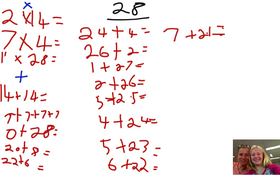 28
x
2 x 4 =
7 x 4 =
1 x 28 =
+
14 + 14 =
7 + 7 + 7 + 7
0 + 28 =
20 + 8 =
22 + 6 =
24 + 4 =
26 + 2 =
1 + 27 =
2 + 26 =
3 + 25 =
4 + 24 =
5 + 23 =
6 + 22 =
7 + 21 =